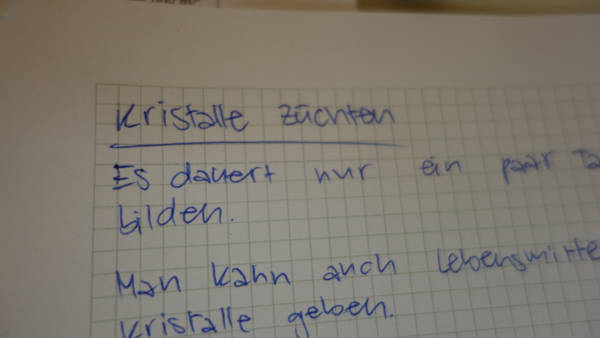 Kristalle züchten
Es dauert nur ein paar Ta
bilden.
Man kann auch Lebensmitte
Kristalle geben.